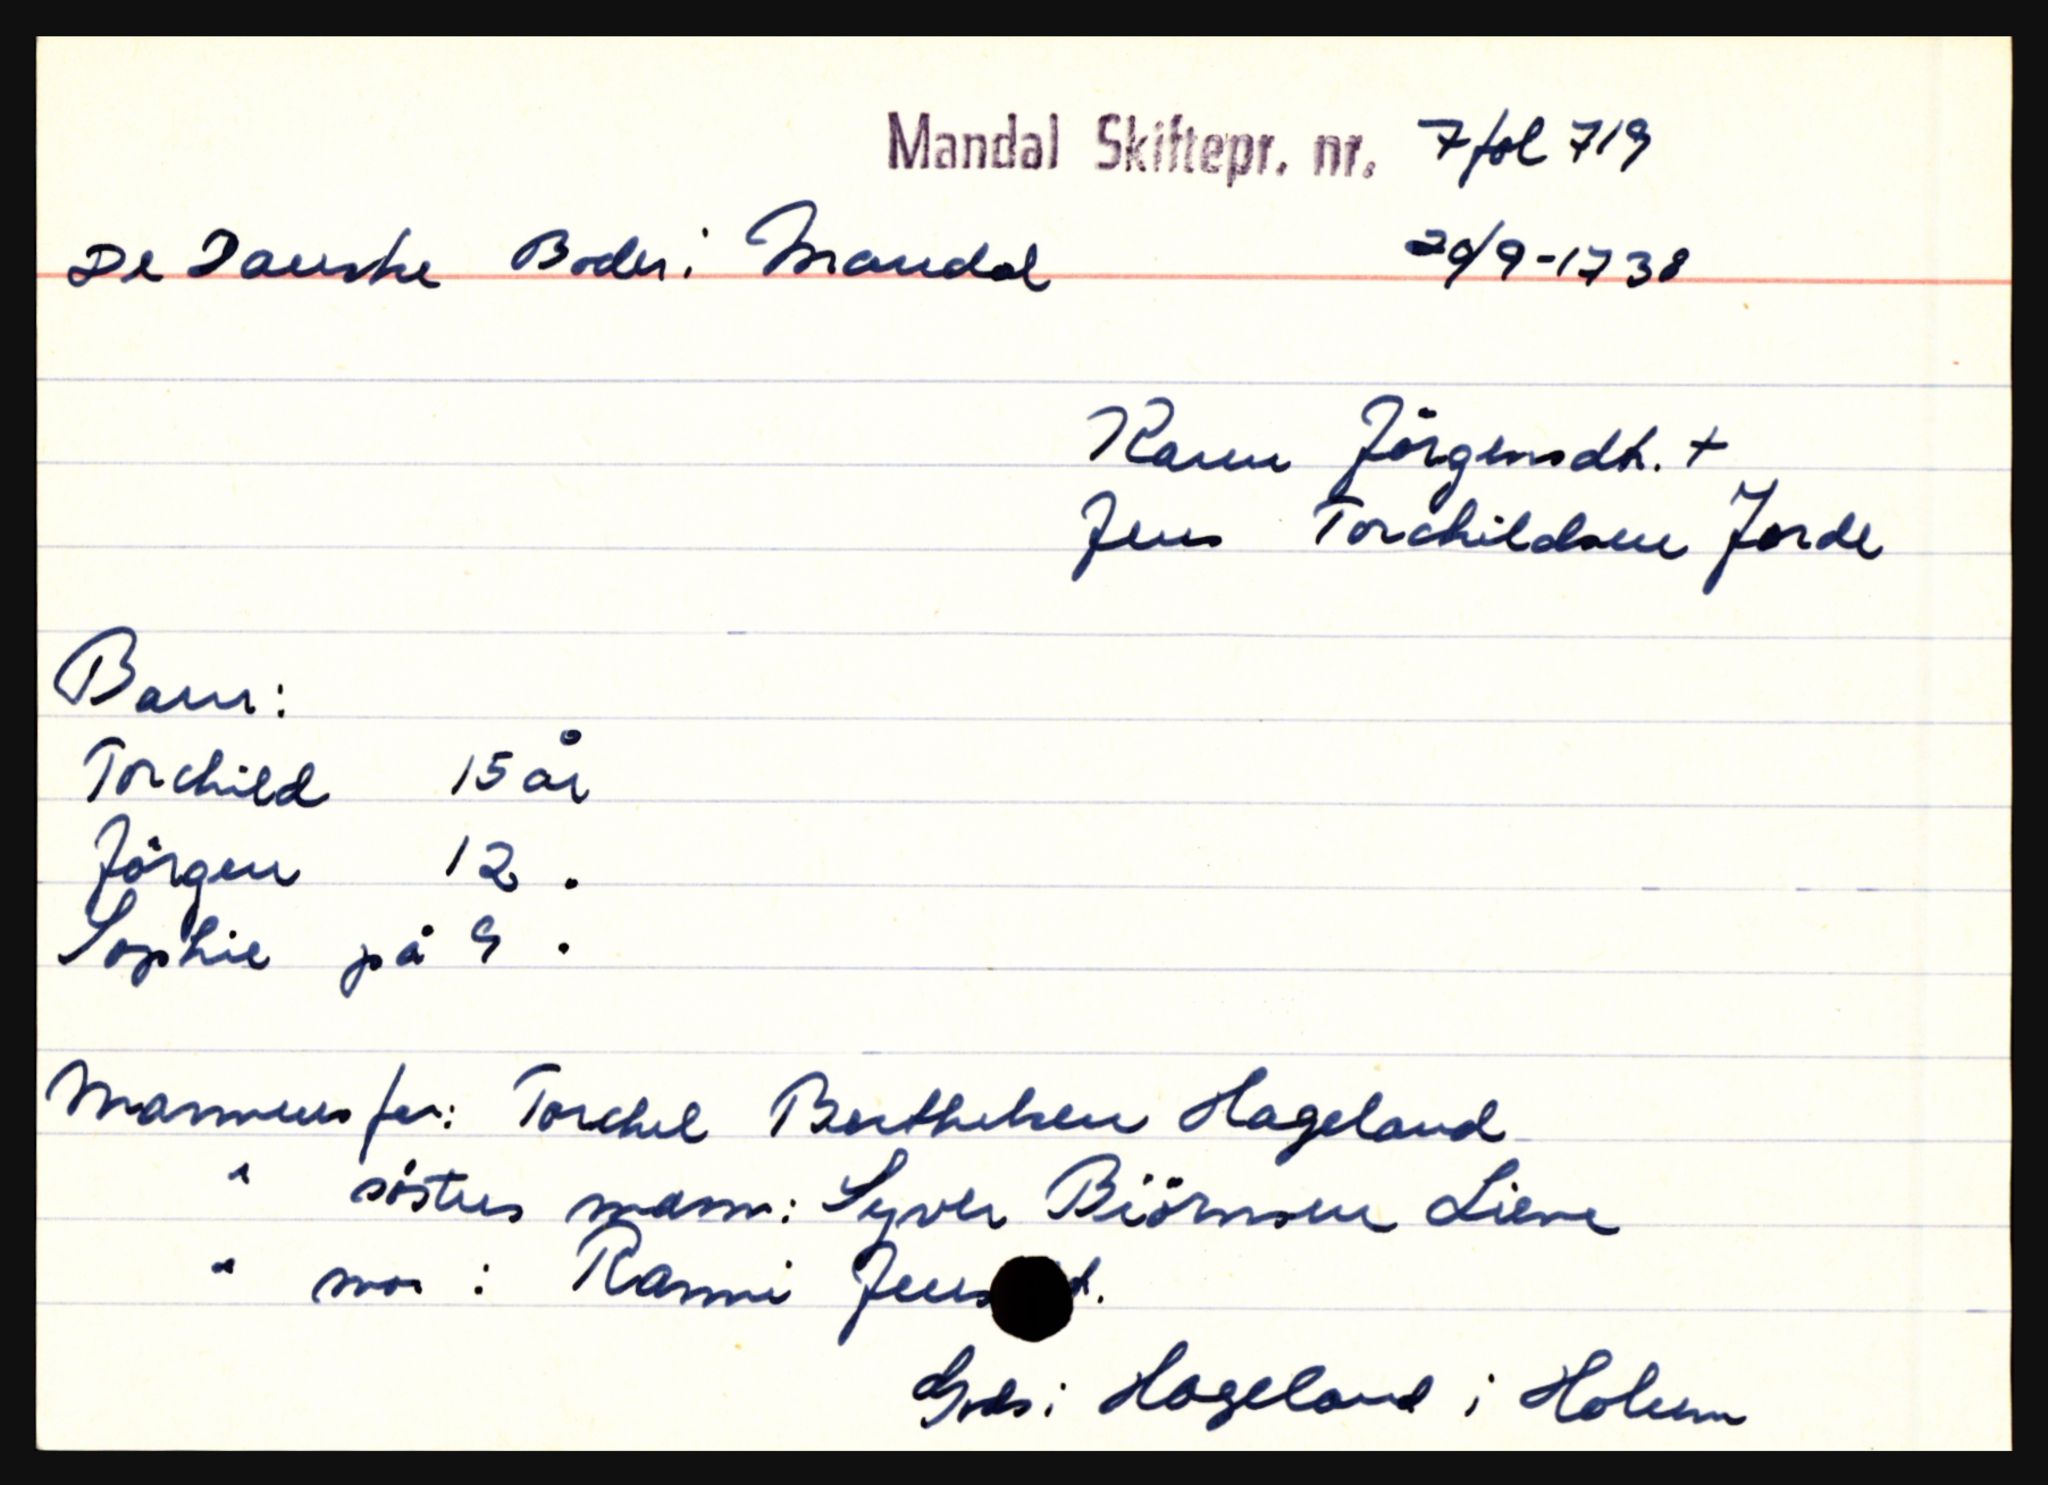 Mandal Skiftepr. nr. 7 fol 719
De Danske Boder i Mandal 29/9-1738
Karen Jörgensdtr. +
Jens Torchildsen Jorde
Barn:
Torchild 15 år
Jörgen 12 "
Sophie på 9 "
Mannens far: Torchel Berthelsen Hageland
" søsters mann: Syver Biörnsen Liene
" mor: Ranni Jens
Gods i Hageland i Holum